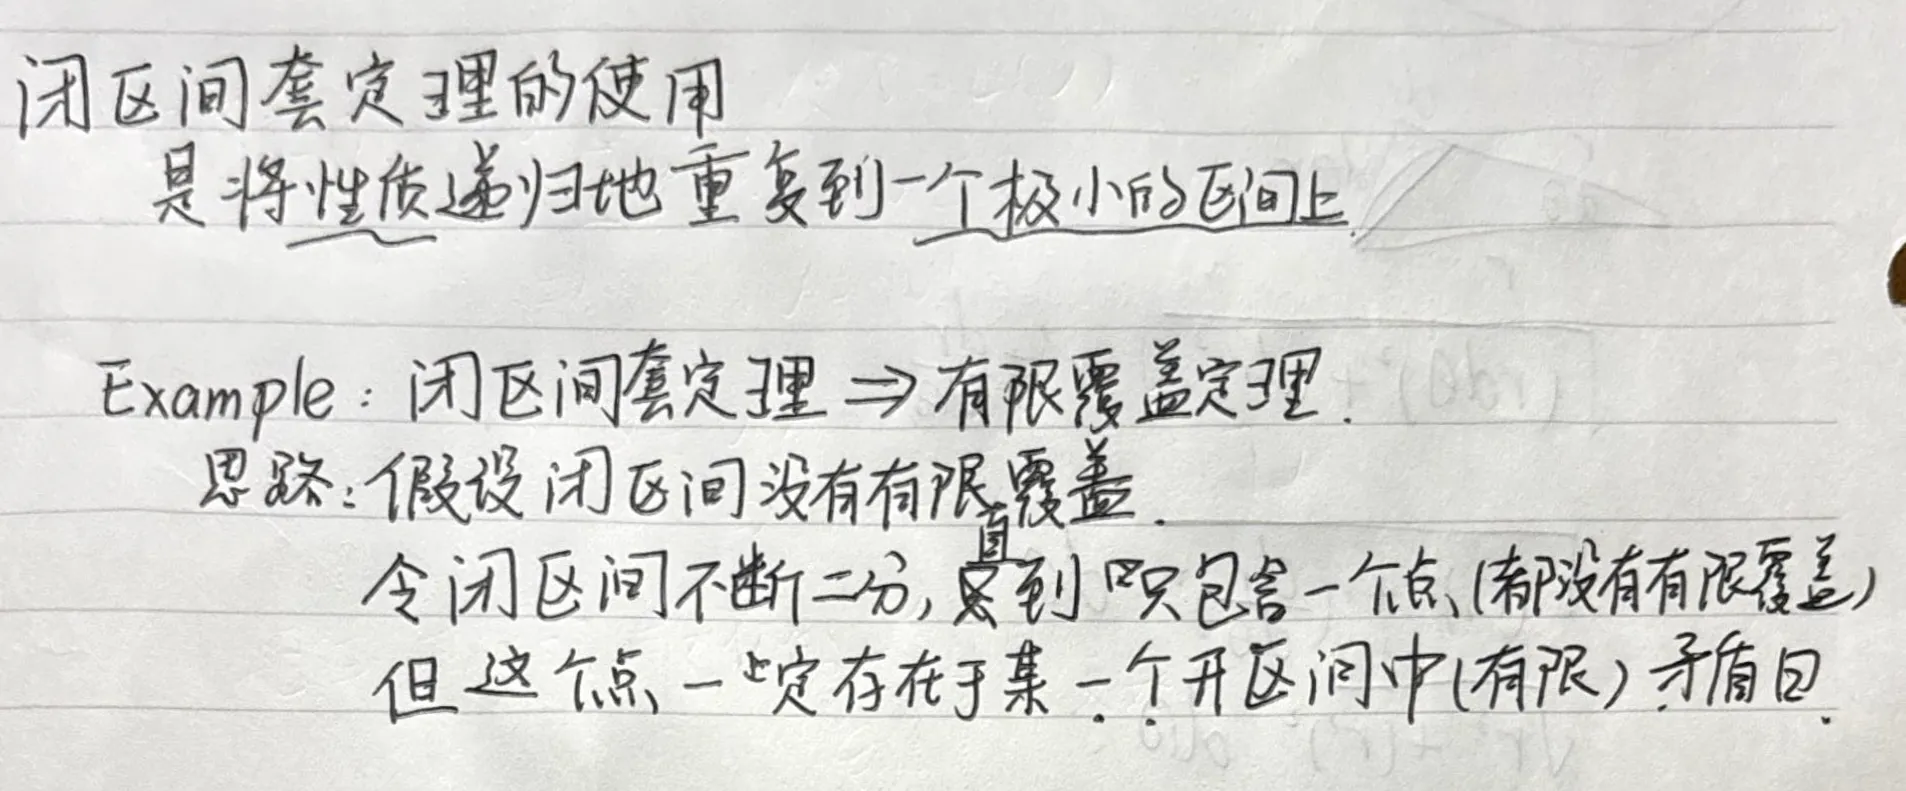 闭区间套定理的使用
是将性质递归地重复到一个极小的区间上.
Example: 闭区间套定理 ⇒ 有限覆盖定理.
思路: 假设闭区间没有有限覆盖.
令闭区间不断二分, 直到只包含一个点 (都没有有限覆盖)
但这个点一定存在于某一个开区间中 (有限) 矛盾